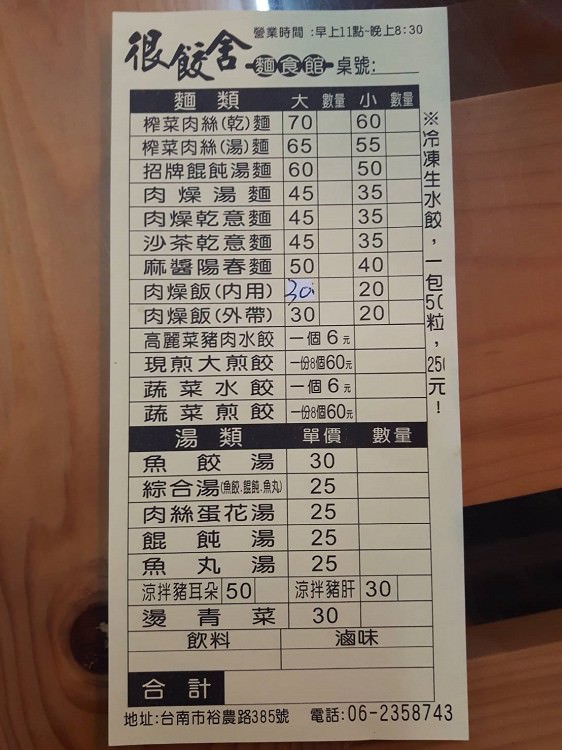 營業時間:早上11點~晚上8:30
很餃舍 麵食館 桌號:
麵類 大 數量 小 數量
榨菜肉絲(乾)麵 70 60
榨菜肉絲(湯)麵 65 55
招牌餛飩湯麵 60 50
肉燥湯麵 45 35
肉燥乾意麵 45 35
沙茶乾意麵 45 35
麻醬陽春麵 50 40
肉燥飯(內用) 30 20
肉燥飯(外帶) 30 20
高麗菜豬肉水餃 一個6元
現煎大煎餃 一份8個60元
蔬菜水餃 一個6元
蔬菜煎餃 一份8個60元
※冷凍生水餃,一包50粒,250元!
湯類 單價 數量
魚餃湯 30
綜合湯(魚餃.餛飩.魚丸) 25
肉絲蛋花湯 25
餛飩湯 25
魚丸湯 25
涼拌豬耳朵 50 涼拌豬肝 30
燙青菜 30
飲料 滷味
合計
地址:台南市裕農路385號 電話:06-2358743